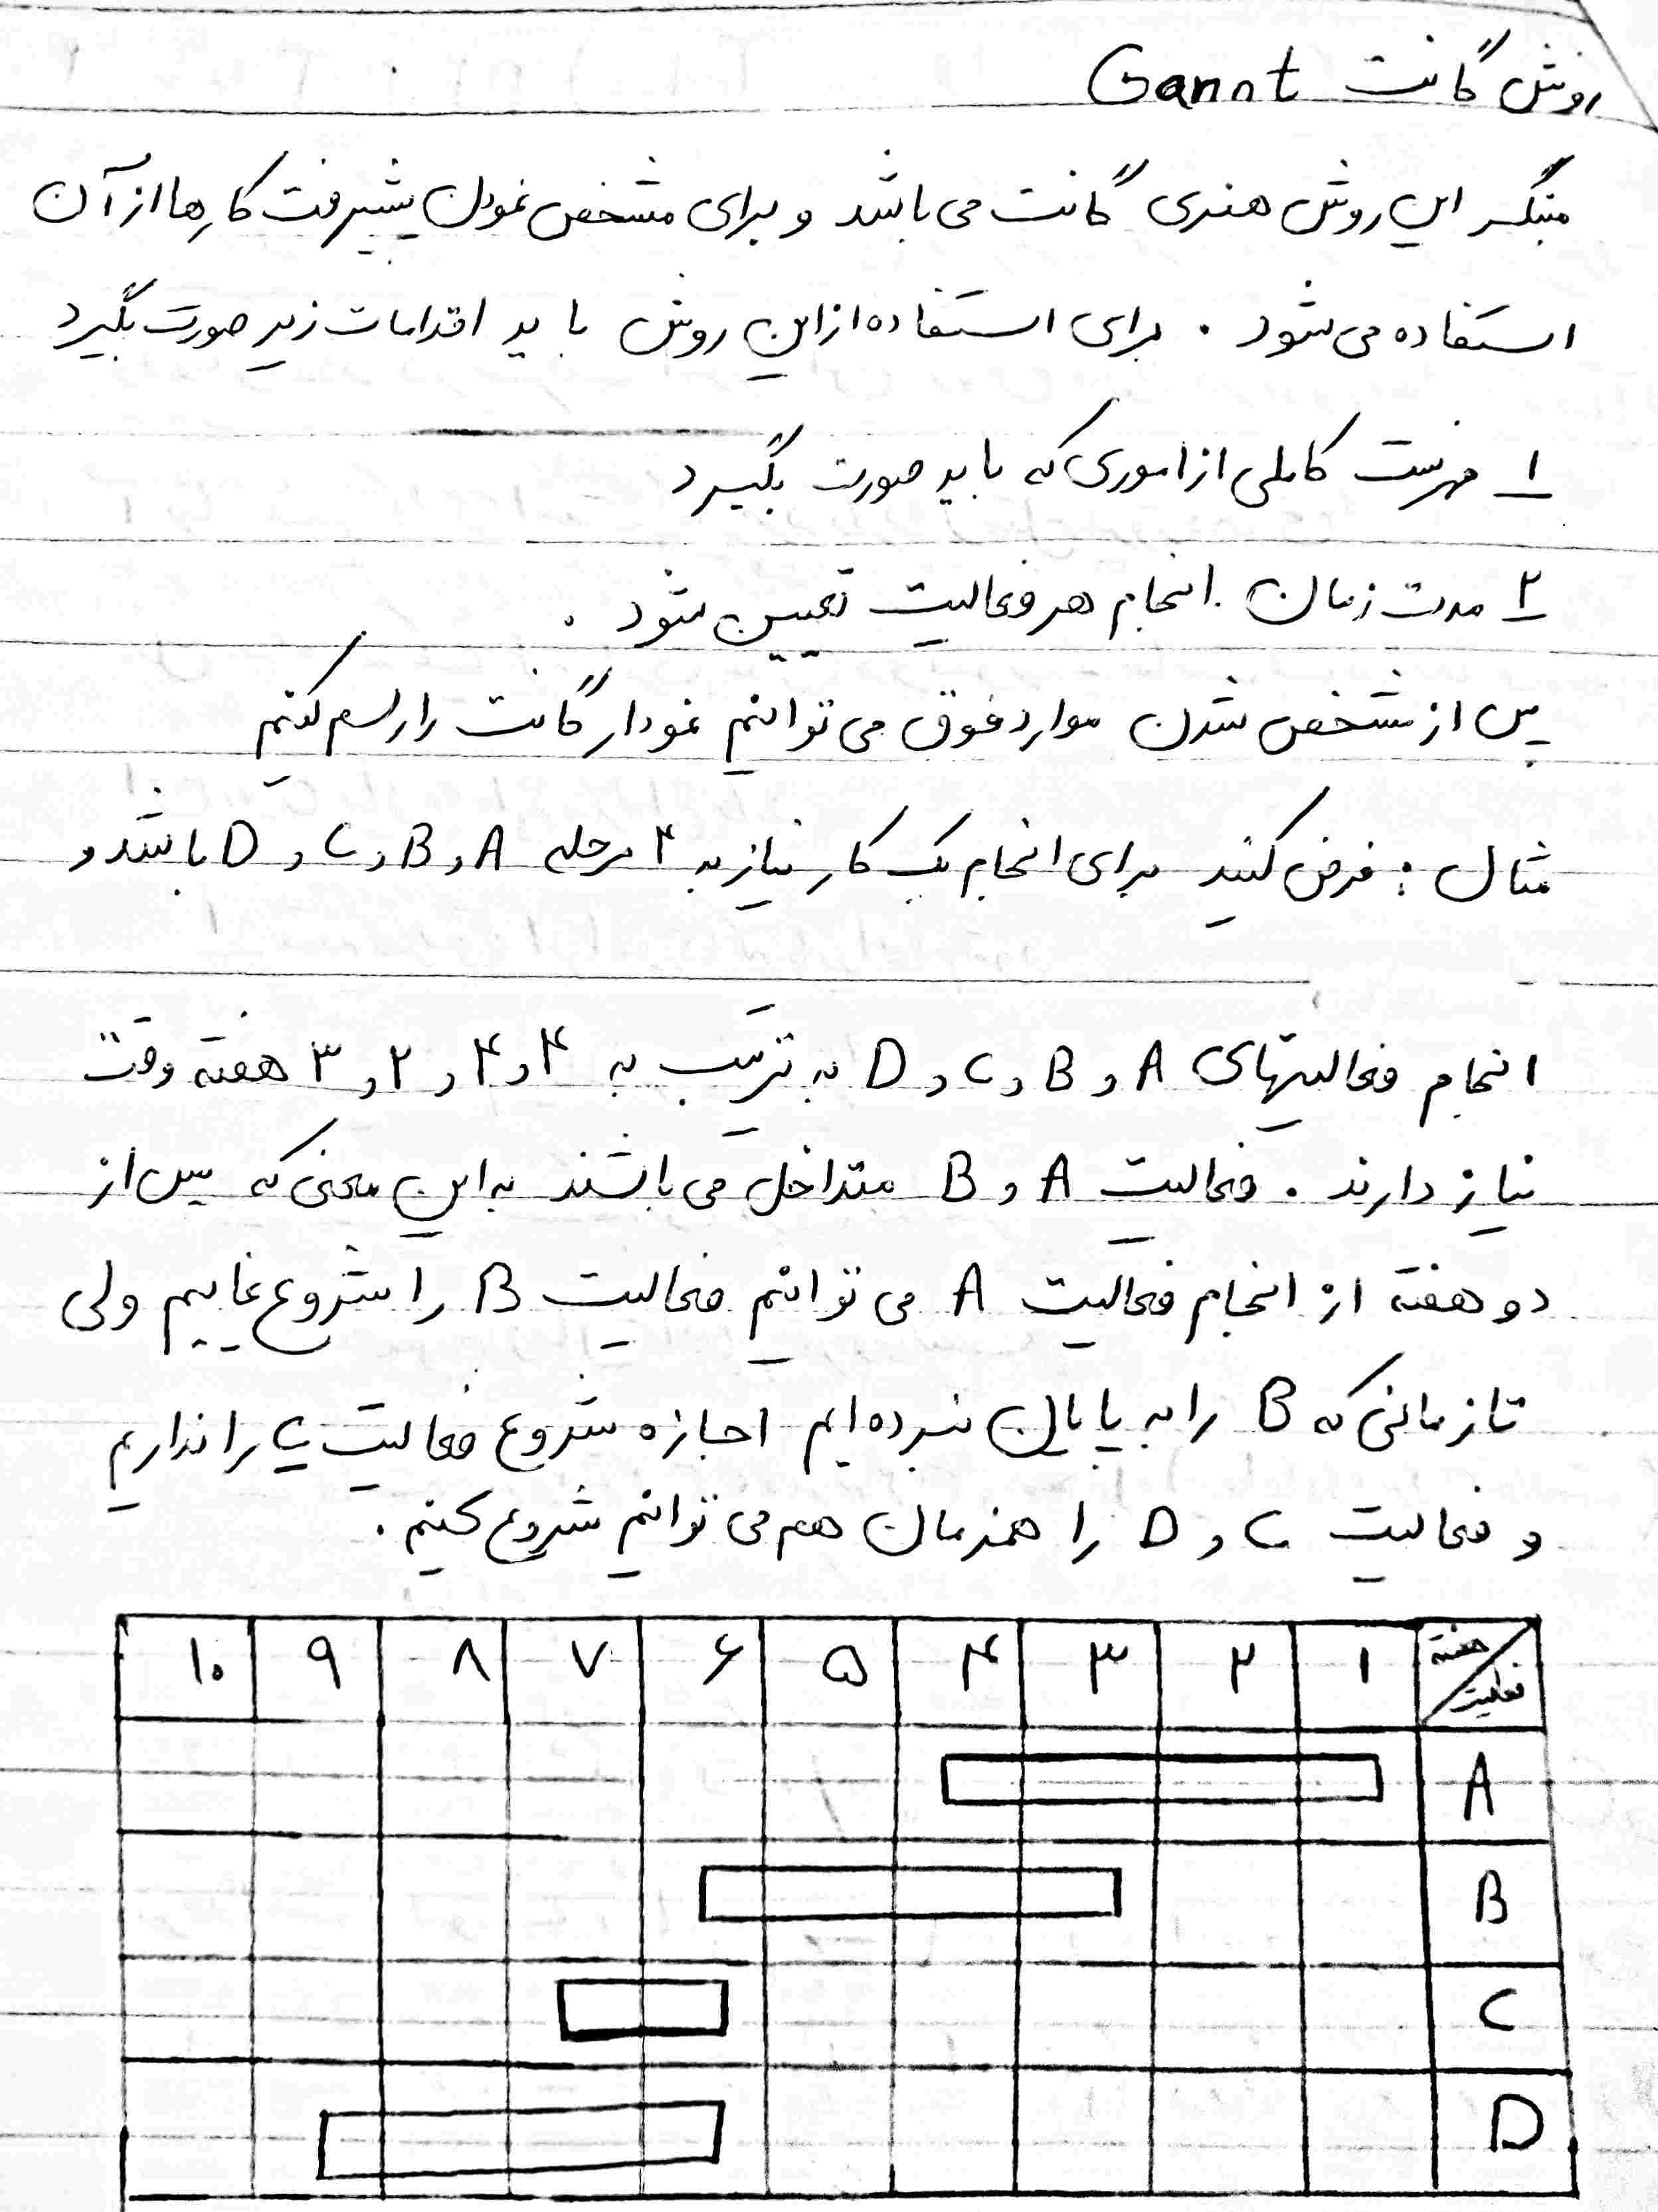 روش گانت Gannt
مبتکر این روش هنری گانت می باشد و برای مشخص نمودن پیشرفت کارها از آن
استفاده می شود . برای استفاده از این روش باید اقدامات زیر صورت بگیرد
۱ فهرست کاملی از اموری که باید صورت بگیرد
۲ مدت زمان انجام هر فعالیت تعیین شود .
پس از مشخص شدن موارد فوق می توانیم نمودار گانت را رسم کنیم
مثال : فرض کنید برای انجام یک کار نیاز به ۴ مرحله A و B و C و D باشد و
انجام فعالیتهای A و B و C و D به ترتیب به ۴ و ۴ و ۲ و ۳ هفته وقت
نیاز دارند . فعالیت A و B متداخل می باشند به این معنی که پس از
دو هفته از انجام فعالیت A می توانیم فعالیت B را شروع نماییم ولی
تا زمانی که B را به پایان نبرده ایم اجازه شروع فعالیت C را نداریم
و فعالیت C و D را همزمان هم می توانیم شروع کنیم .
هفته ۱ ۲ ۳ ۴ ۵ ۶ ۷ ۸ ۹ ۱۰
فعالیت
A
B
C
D